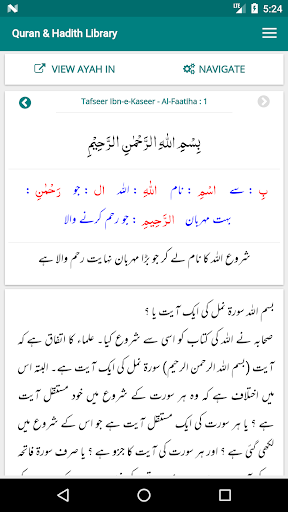 5:24
Quran & Hadith Library
VIEW AYAH IN
NAVIGATE
Tafseer Ibn-e-Kaseer - Al-Faatiha : 1
بِسْمِ اللهِ الرَّحْمٰنِ الرَّحِيْمِ
بِ : سے اسْمِ : نام اللّٰهِ : اللہ ال : جو رَحْمٰنِ :
بہت مہربان الرَّحِيمِ : جو رحم کرنے والا
شروع اللہ کا نام لے کر جو بڑا مہربان نہایت رحم والا ہے
بسم اللہ سورۃ نمل کی ایک آیت یا ؟
صحابہ نے اللہ کی کتاب کو اسی سے شروع کیا۔ علماء کا اتفاق ہے کہ
آیت (بسم اللہ الرحمن الرحیم) سورۃ نمل کی ایک آیت ہے۔ البتہ اس
میں اختلاف ہے کہ وہ ہر سورت کے شروع میں خود مستقل آیت
ہے ؟ یا ہر سورت کی ایک مستقل آیت ہے جو اس کے شروع میں
لکھی گئی ہے ؟ اور ہر سورت کی آیت کا جزو ہے ؟ یا صرف سورۃ فاتحہ